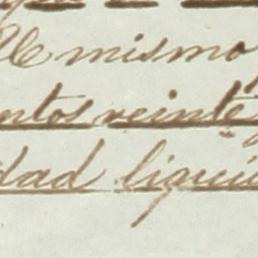 mismo
ntos veinte
dad liqui